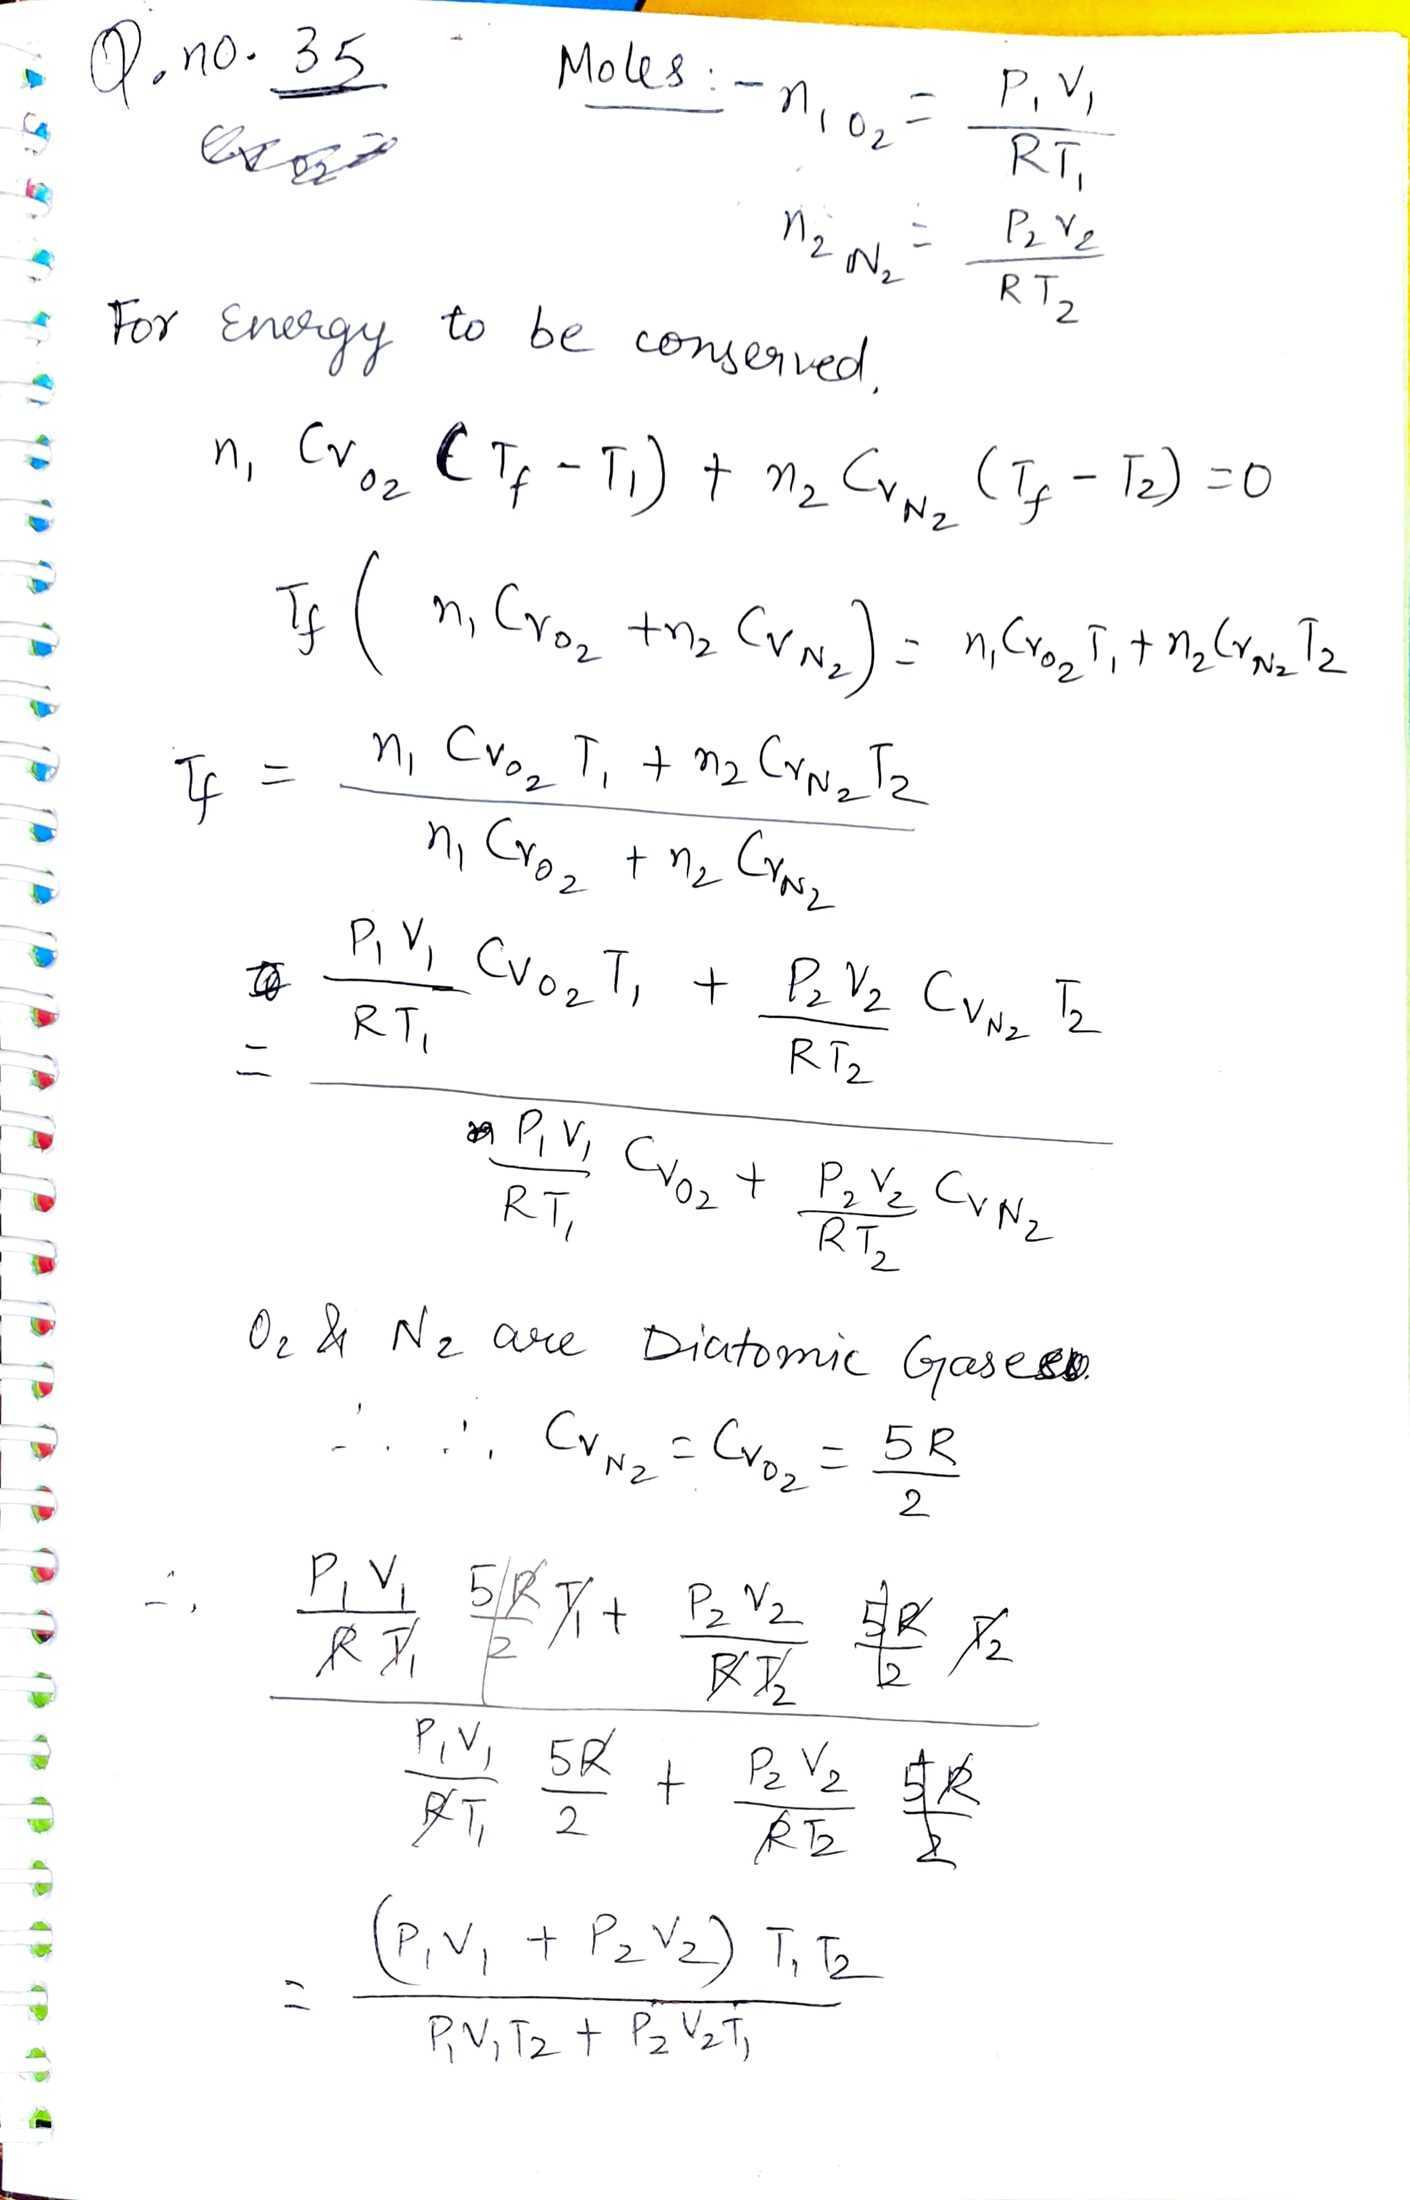 Q. no. 35
Moles :- n₁ O₂ = P₁ V₁ / R T₁
n₂ N₂ = P₂ V₂ / R T₂
For Energy to be conserved,
n₁ Cv O₂ (Tf - T₁) + n₂ Cv N₂ (Tf - T₂) = 0
Tf ( n₁ Cv O₂ + n₂ Cv N₂ ) = n₁ Cv O₂ T₁ + n₂ Cv N₂ T₂
Tf = n₁ Cv O₂ T₁ + n₂ Cv N₂ T₂ / n₁ Cv O₂ + n₂ Cv N₂
= P₁ V₁ / R T₁ Cv O₂ T₁ + P₂ V₂ / R T₂ Cv N₂ T₂ / P₁ V₁ / R T₁ Cv O₂ + P₂ V₂ / R T₂ Cv N₂
O₂ & N₂ are Diatomic Gases
∴ ∴ Cv N₂ = Cv O₂ = 5R / 2
∴ P₁ V₁ / R T₁ 5R / 2 T₁ + P₂ V₂ / R T₂ 5R / 2 T₂ / P₁ V₁ / R T₁ 5R / 2 + P₂ V₂ / R T₂ 5R / 2
= (P₁ V₁ + P₂ V₂) T₁ T₂ / P₁ V₁ T₂ + P₂ V₂ T₁